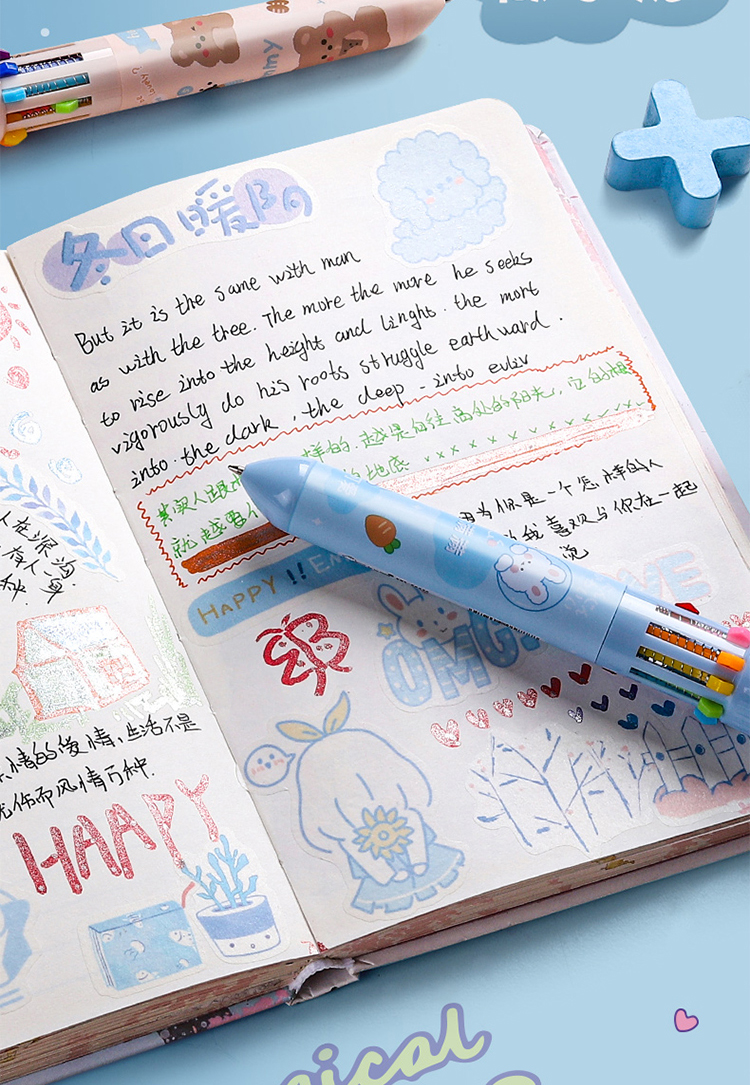 冬日暖阳
But it is the same with man
as with the tree. The more the more he seeks
to rise into the height and linght. the mort
vigorously do his roots struggle earthward.
into the dark, the deep - into evliv
其实人跟 样的,越是向往高处的阳光,它的根
就越要 的地底
因为你是一个怎样的人
我喜欢与你在一起
说
HAPPY !!
OMG
人在深沟
有人
情的爱情,生活不是
而风情万种.
HAAPY
ical